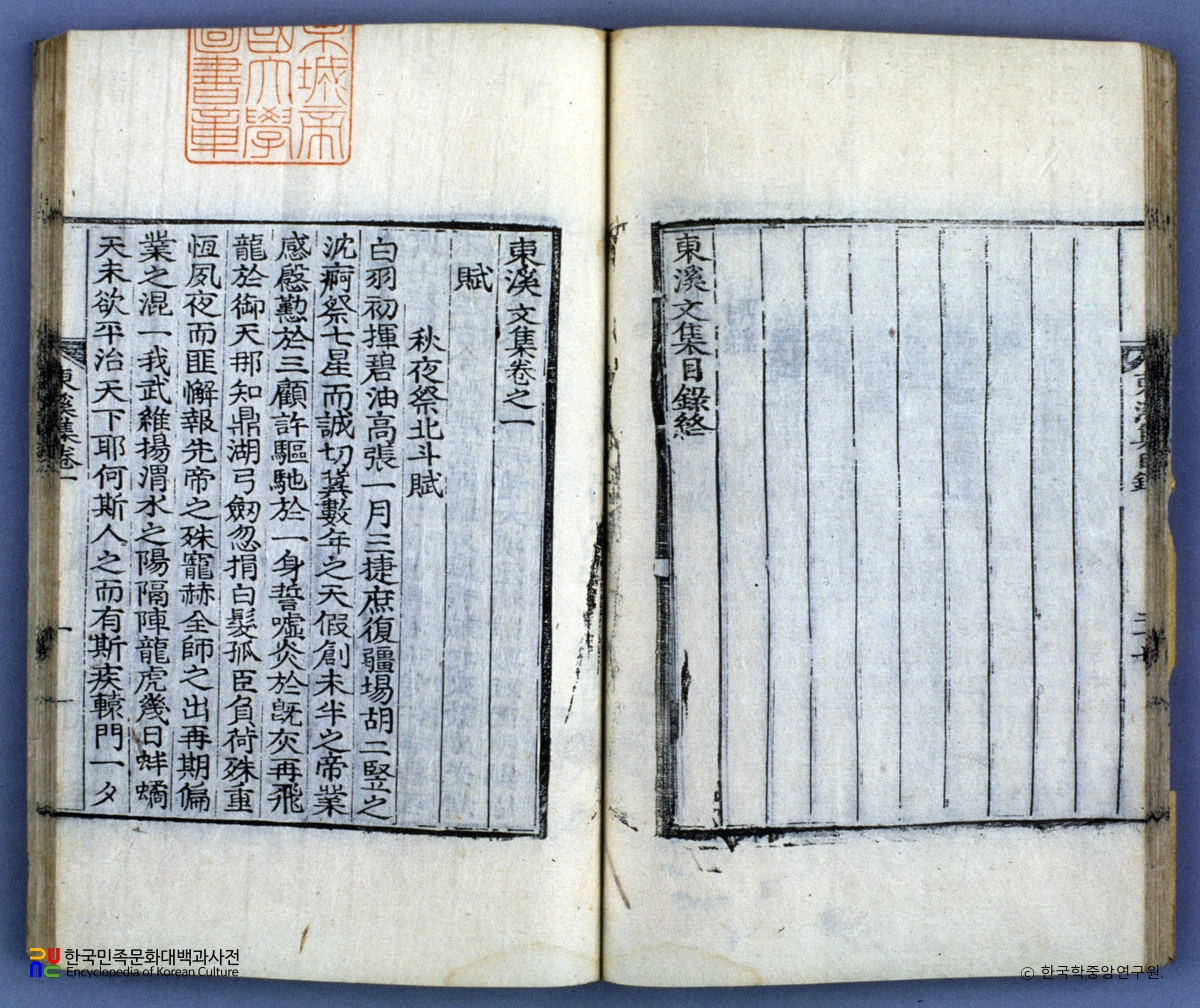 東溪集目錄
東溪文集目錄終
京城帝
國大學
圖書章
東溪文集卷之一
賦
秋夜祭北斗賦
白羽初揮碧油高張一月三捷庶復疆場胡二竪之
沈痾祭七星而誠切冀數年之天假創未半之帝業
感慇懃於三顧許驅馳於一身誓噓炎於旣灰再飛
龍於御天那知鼎湖弓劒忽捐白髮孤臣負荷殊重
恆夙夜而匪懈報先帝之殊寵赫全師之出再期偏
業之混一我武維揚渭水之陽隔陣龍虎幾日蚌𧑐
天未欲平治天下耶何斯人之而有斯疾轅門一夕
東溪集卷一 一
한국민족문화대백과사전
Encyclopedia of Korean Culture
© 한국학중앙연구원.